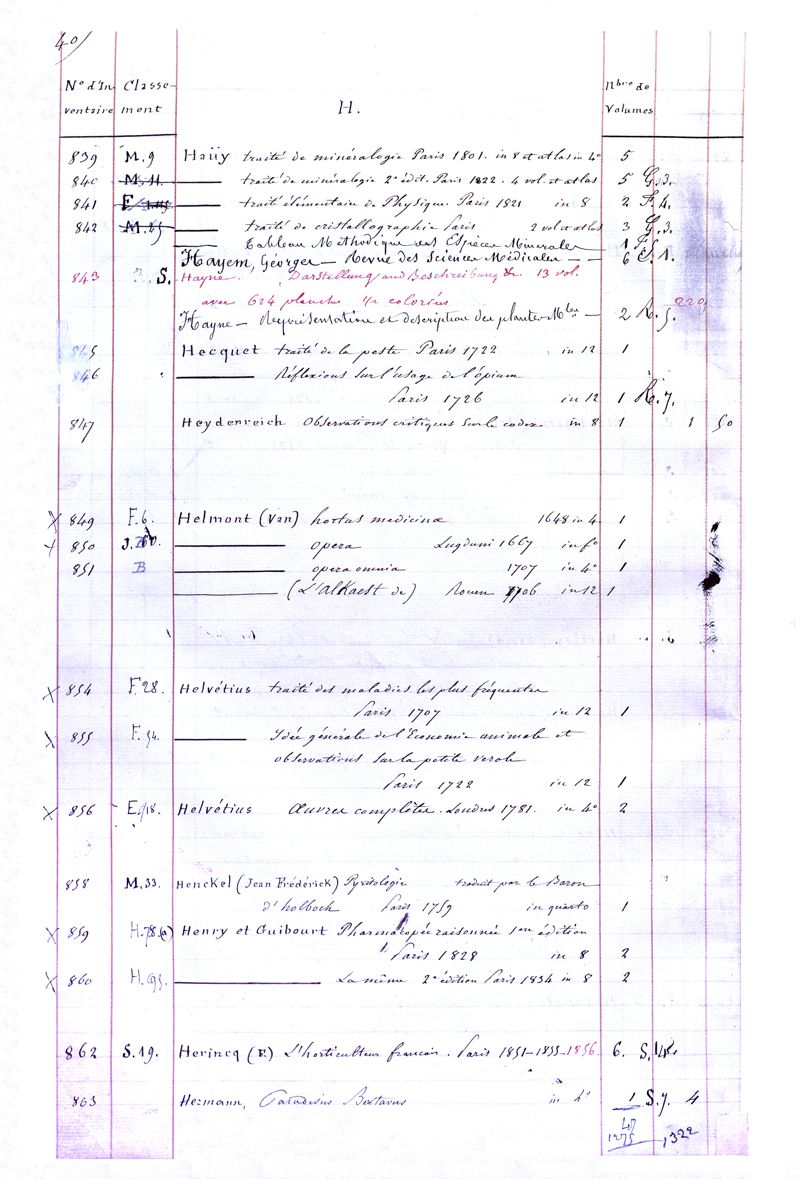 40/
N° d'In- Classe- Nbre de
ventaire ment H. Volumes
839 M.9 Haüy traité de minéralogie Paris 1801. in 8 et atlas in 4° 5
840 M.11. traité de minéralogie 2e édit. Paris 1822. 4 vol. et atlas 5 G.3.
841 traité élémentaire de Physique Paris 1821 in 8 2 F.4.
842 M.25 traité de cristallographie Paris 2 vol et atlas 3 G.3.
Tableau Méthodique des Espèces Minerales 1
Hayem, Géorges — Revue des Sciences Médicales — 6 S.1.
843 S. Hayne. Darstellung und Beschreibung &. 13 vol.
avec 624 planches coloriées
Hayne — Représentation et description des plantes Mles — 2 R.5. 220
845 Hecquet traité de la peste Paris 1722 in 12 1
846 Réflexions sur l'usage de l'opium
Paris 1726 in 12 1 R.7.
847 Heydenreich Observations critiques sur le codex in 8 1 1 50
X 849 F.6. Helmont (Van) hortus medicinæ 1648 in 4 1
850 opera Lugduni 1667 in f° 1
851 B opera omnia 1707 in 4° 1
(L'Alkaest de) Rouen 1706 in 12 1
X 854 F.28. Helvétius traité des maladies les plus fréquentes
Paris 1707 in 12 1
X 855 F.54. Idée générale de l'Economie animale et
observations sur la petite verole
Paris 1722 in 12 1
X 856 E.18. Helvétius Œuvres complètes. Londres 1781. in 4° 2
858 M.33. Henckel (Jean Frédérick) Pyritologie traduit par le Baron
d'holbach Paris 1759 in quarto 1
X 859 H.78.(a) Henry et Guibourt Pharmacopée raisonnée 1ere édition
Paris 1828 in 8 2
X 860 H.95. La même 2e édition Paris 1834 in 8 2
862 S.19. Herincq (F.) L'horticulteur francais. Paris 1851-1855-1856 6. S.
863 Hermann, Paradisus Batavus in 4° 1 S.7. 4
47
1275 1322